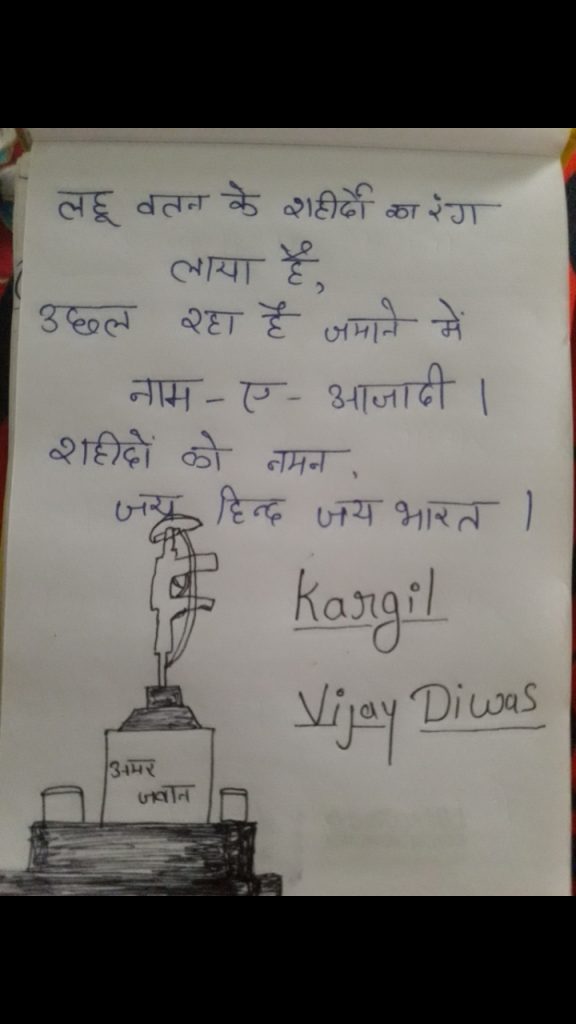 लहू वतन के शहीदों का रंग
लाया है,
उछल रहा है जमाने में
नाम - ए - आजादी ।
शहीदों को नमन,
जय हिन्द जय भारत ।
Kargil
Vijay Diwas
अमर
जवान